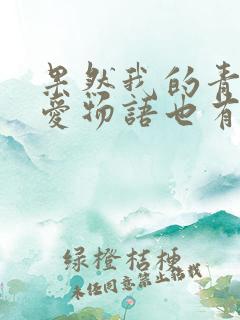 果然我的青
愛物語也有
绿橙桔梗
未经同意禁止转载